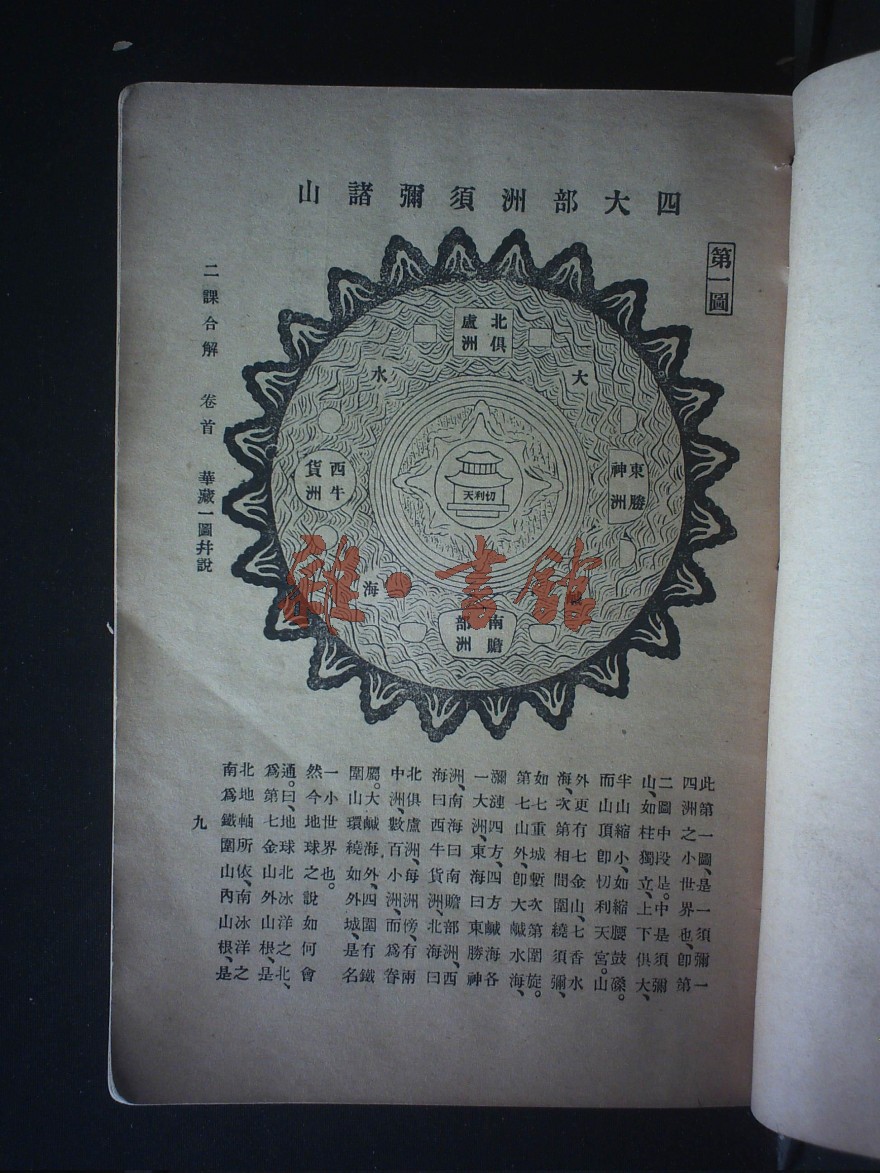 四大部洲須彌諸山
第一圖
北俱盧洲
大
水
東勝神洲
西牛貨洲
忉利天
海
南贍部洲
雜·書館
此第一圖、是一須彌一
四洲之小世界也、即第
二圖中段是。中是須彌
山如柱獨立、上下俱大、
半山縮小、如縮腰鼓磉。
而山頂即忉利天宮。山
外更有七金山、七香水
海、次第相間圍繞須彌、
如七重城塹、次第圍旋。
第七山外、即大鹹水海、
瀰漣四方、四方鹹海各
一大洲、東海曰東勝神
洲、南海曰南贍部洲、西
海曰西牛貨洲、北海曰
北俱盧洲、每洲傍、有兩
中洲、數百小洲、而為眷
屬。大鹹海外、四圍有鐵
圍山環繞如外城、是名
一小世界也。
然今地球之說如何會
通。曰、地球北冰洋之北、
為第七金山外山根、是
北地軸所依、南冰洋之
南為鐵圍山內山根、是
二課合解 卷首 華藏一圖幷說
九